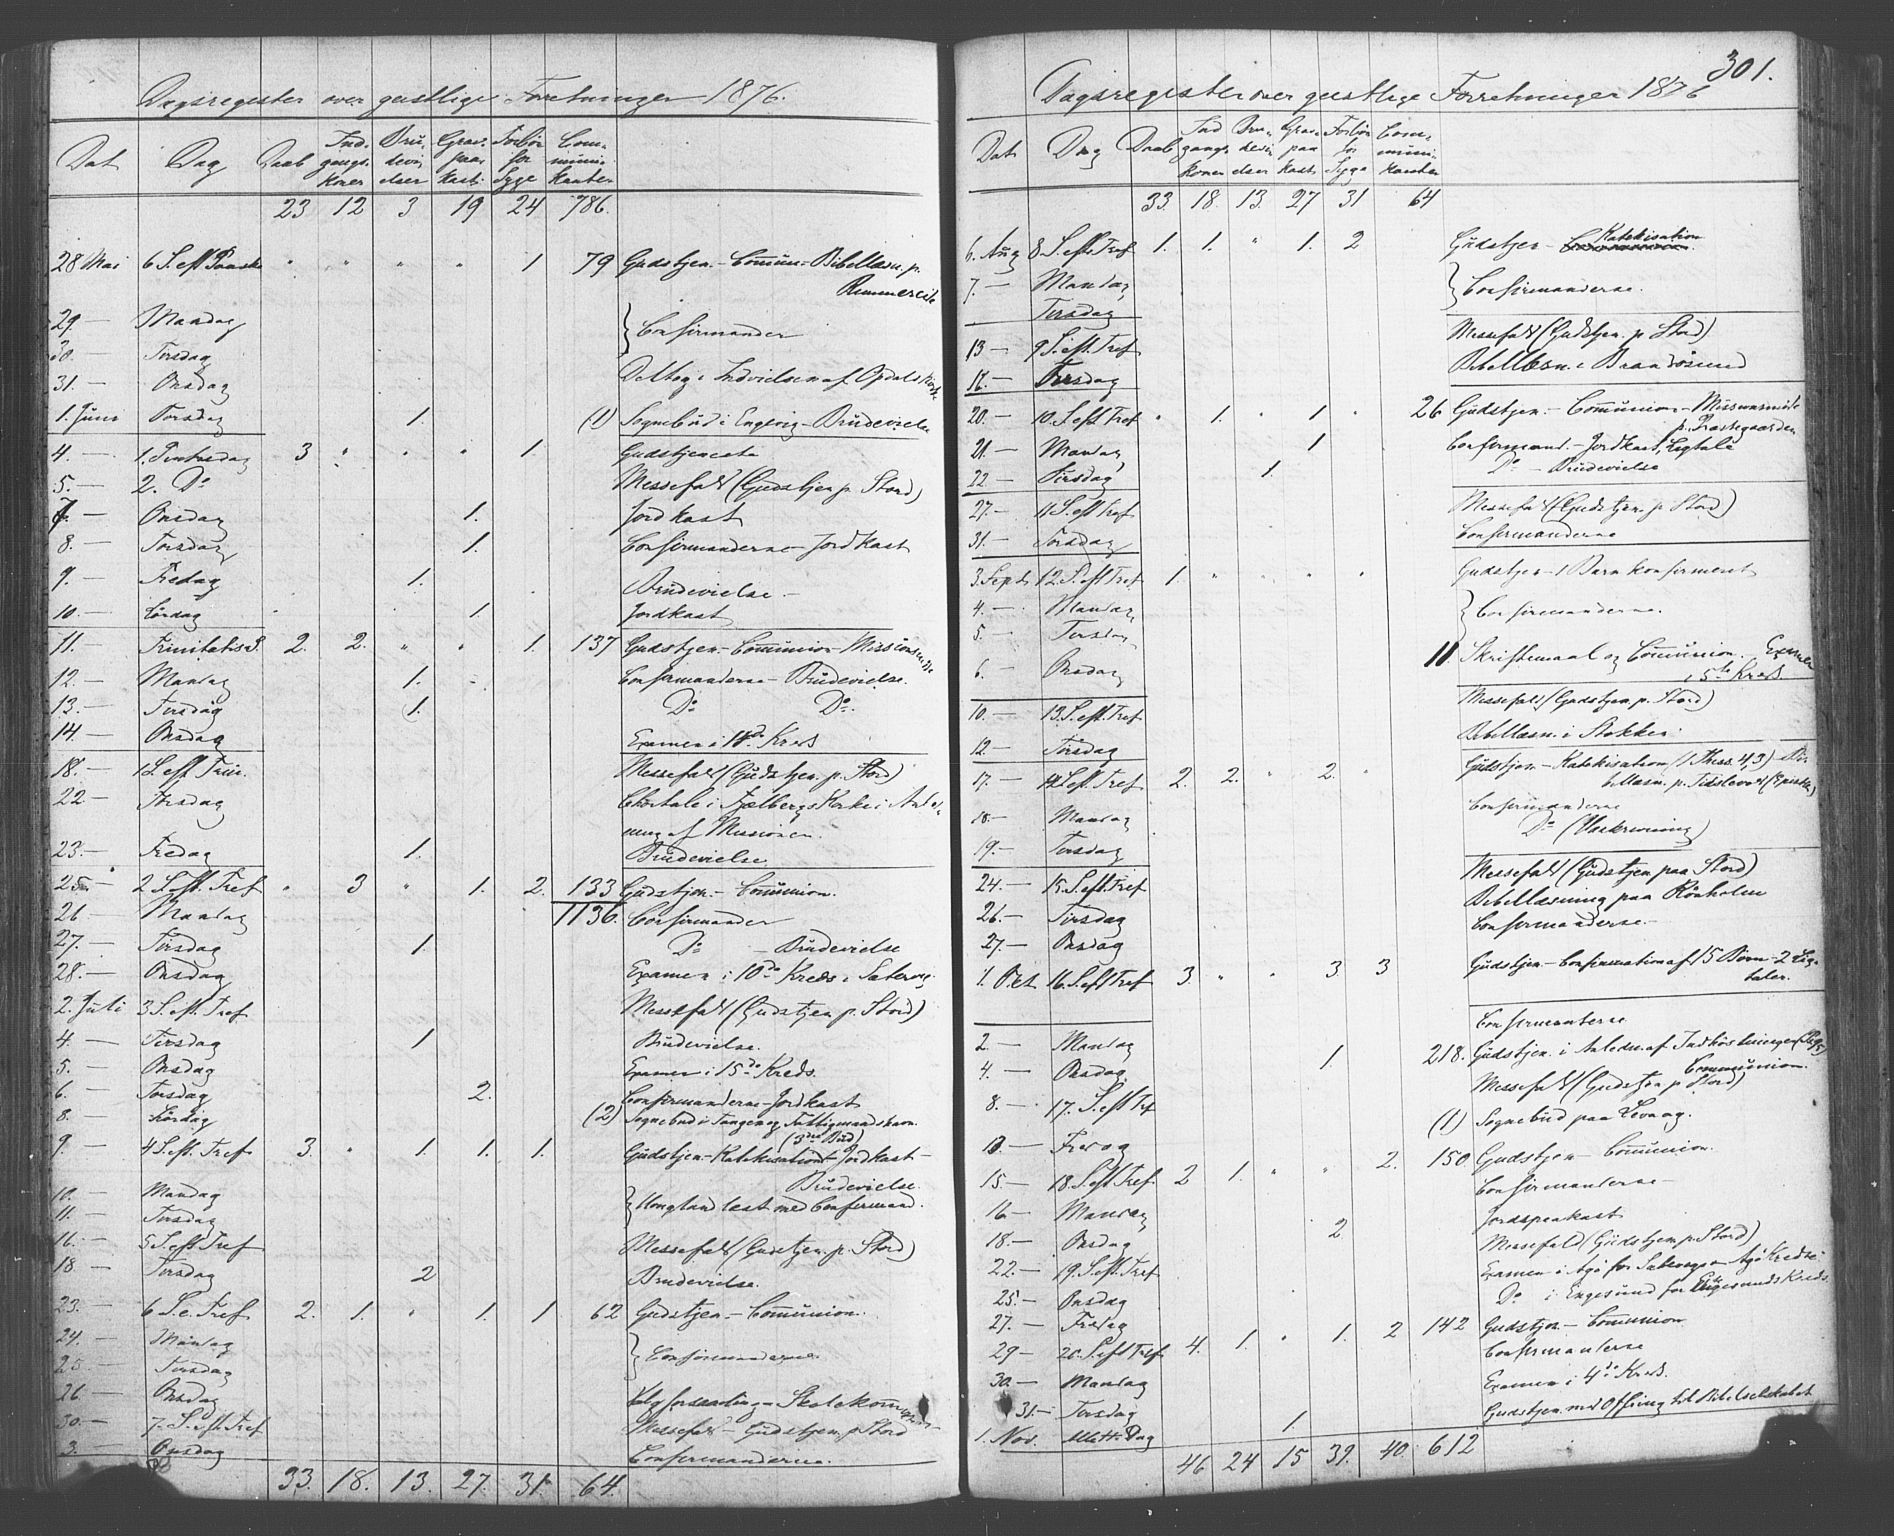 301.
Dagsregister over geistlige Forretninger 1876.
Dat Dag Daab Ind- gangs- koner Bru- devi- elser Grav- paa- kast. Forbøn for Syge Com- muni- kanter
23 12 3 19 24 786.
28 Mai 6 S. eft. Paaske " " " " 1 79 Gudstjen. - Commun - Bibellæsn. p.
Rummereide
29. — Mandag } Confirmander
30. — Tirsdag
31. — Onsdag Deltog i Indvielsen af Opdals Kirke
1. Juni Torsdag 1. (1) Sognebud i Engevig - Brudevielse
4. — 1. Pintsedag 3 " " " 1. Gudstjeneste
5. — 2. Do Messefald (Gudstjen. p. Stord)
7. — Onsdag 1. Jordkast
8. — Torsdag 1. Confirmanderne - Jordkast
9. — Fredag 1. Brudevielse -
10. — Lørdag 1. Jordkast
11. — Trinitatis S. 2. 2. " " 1. 137 Gudstjen. - Communion - Missionsmøde
12. — Mandag 1. Confirmanderne - Brudevielse.
13. — Tirsdag 1. Do Do.
14. — Onsdag Examen i Kreds
18. — 1 S. eft. Trin. Messefald (Gudstjen. p. Stord)
22 — Torsdag Chortale i Fjelbergs Kirke i Anled-
ning af Missionen.
23. — Fredag 1. Brudevielse
25. — 2 S. eft. Tref. " 3 " 1. 2. 133 Gudstjen. - Communion.
26 — Mandag 1136. Confirmander
27. — Tirsdag 1. Do - Brudevielse
28. — Onsdag Examen i 10de Kreds i Sætervig
2. Juli 3 S. eft. Tref Messefald (Gudstjen. p. Stord)
4. — Tirsdag 1 Brudevielse.
5. — Onsdag Examen i 15de Kreds.
6. — Torsdag 2. Confirmanderne - Jordkast
8. — Lørdag (2) Sognebud i Tangen og Fattigmandshavn.
(3die Bud)
9. — 4 S. eft. Tref. 3. " 1. 1. 1. Gudstjen. - Katekisation - Jordkast -
Brudevielse.
10. — Mandag } Hougland læst med Confirmand.
11. — Tirsdag
16. — 5 S. eft. Tref Messefald (Gudstjen. p. Stord)
18 — Tirsdag 2 Brudevielse.
23. — 6 S. e. Tref 2. 1. " 1. 1 62 Gudstjen - Communion.
24. — Mandag } Confirmanderne.
25 — Tirsdag
26 — Onsdag Valgforsamling - Skolekommission
30. — 7. S. eft. Tref Messefald - Gudstjen. p. Stord
3. — Onsdag Confirmanderne.
33. 18. 13. 27. 31. 64.
Dagsregister over geistlige Forretninger 1876
Dat Dag Daab Ind gangs- koner Bru- devi- elser Grav- paa kast Forbøn for Syge Com- muni- kanter
33. 18. 13. 27 31 64
6. Aug 8. S. eft. Tref 1. 1. " 1. 2 Gudstjen - Katekisation
7. — Mandag } Confirmanderne.
Tirsdag
13 — 9 S. eft. Tref Messefald (Gudstjen. p. Stord)
16. — Bibellæsn. i Brandøsund
20. — 10. S. eft Tref " 1. " 1 " 26 Gudstjen. - Communion - Missionsmøde
p. Præstegaarden
21. — Mandag 1 Confirmand. - Jordkast, Ligtale
22. — Tirsdag 1 Do - Brudevielse
27. — 11 S. eft Tref Messefald (Gudstjen. p. Stord)
31. — Torsdag Confirmanderne
3. Sept. 12. S. eft Tref 1. " " " " Gudstjen - 1 Barn konfirmeret
4. — Mandag } Confirmanderne.
5. — Tirsdag
6. — Onsdag 11 Skriftemaal og Communion. Examen
i 5te Kreds
10. — 13. S. eft. Tref Messefald (Gudstjen. p. Stord)
12. — Tirsdag Bibellæsn. i Stokken
17. — 14 S. eft. Tref 2. 2. " 2. " Gudstjen - Katekisation (1 Thess. 4,3) - Bi-
bellæsn. p.
18. — Mandag Confirmanderne
19. — Tirsdag Do
24. — 15. S. eft Tref Messefald (Gudstjen paa Stord)
26. — Tirsdag Bibellæsning paa Rönholm
27. — Onsdag Confirmanderne -
1. Oct 16. S. eft Tref 3. " " 3 3 Gudstjen - Confirmation af 15 Børn - 2 Lig-
taler.
2. — Mandag Confirmanterne
4. — Onsdag 1 218. Gudstjen. i Anledn. af Indhøstningen
Communion.
8. — 17. S. eft Tref Messefald (Gudstjen p. Stord)
Fredag (1) Sognebud paa
15. — 18. S. eft Tref. 2 1. " " 2. 150 Gudstjen - Communion.
16 — Mandag Confirmanterne -
18. — Onsdag 2 Jordspaakast
22. — 19. S. eft. Tref Messefald (Gudstjen p. Stord)
25. — Onsdag Examen i Agö for Sætervigs - Agö Kredse
27. — Fredag Do i Engesund for Engesunds Kreds.
29 — 20. S. eft Tref. 4. 1. " 1. 2 142 Gudstjen - Communion
30. — Mandag Confirmanterne
31. — Tirsdag Examen i 4de Kreds.
1. Nov. Allehl. Dag 1. Gudstjen. med Offring til Bibelselskabet
46 24 15 39. 40. 612